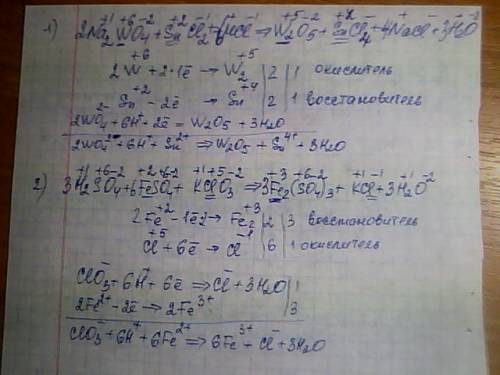 1) 2Na₂⁺¹W⁺⁶O₄⁻² + Sn⁺²Cl₂⁻¹ + 6HCl⁻¹ ⇒ W₂⁺⁵O₅⁻² + SnCl₄⁻ + 4Na⁺Cl⁻ + 3H₂⁺O⁻²
2W⁺⁶ + 2·1ē → W₂⁺⁵ | 2 | 1 окислитель
Sn⁺² - 2ē → Sn⁺⁴ | 2 | 1 восстановитель
2WO₄²⁻ + 6H⁺ + 2ē = W₂O₅ + 3H₂O
2WO₄²⁻ + 6H⁺ + Sn²⁺ ⇒ W₂O₅ + Sn⁴⁺ + 3H₂O
2) 3H₂⁺¹S⁺⁶O₄⁻² + 6Fe⁺²S⁺⁶O₄⁻² + K⁺¹Cl⁺⁵O₃⁻² ⇒ 3Fe₂⁺³(S⁺⁶O₄⁻²)₃ + K⁺¹Cl⁻¹ + 3H₂⁺¹O⁻²
2Fe⁺² - 1ē·2 → Fe₂⁺³ | 2 | 3 восстановитель
Cl⁺⁵ + 6ē → Cl⁻¹ | 6 | 1 окислитель
ClO₃⁻ + 6H⁺ + 6ē ⇒ Cl⁻ + 3H₂O | 1
2Fe²⁺ - 2ē ⇒ 2Fe³⁺ | 3
ClO₃⁻ + 6H⁺ + 6Fe²⁺ ⇒ 6Fe³⁺ + Cl⁻ + 3H₂O